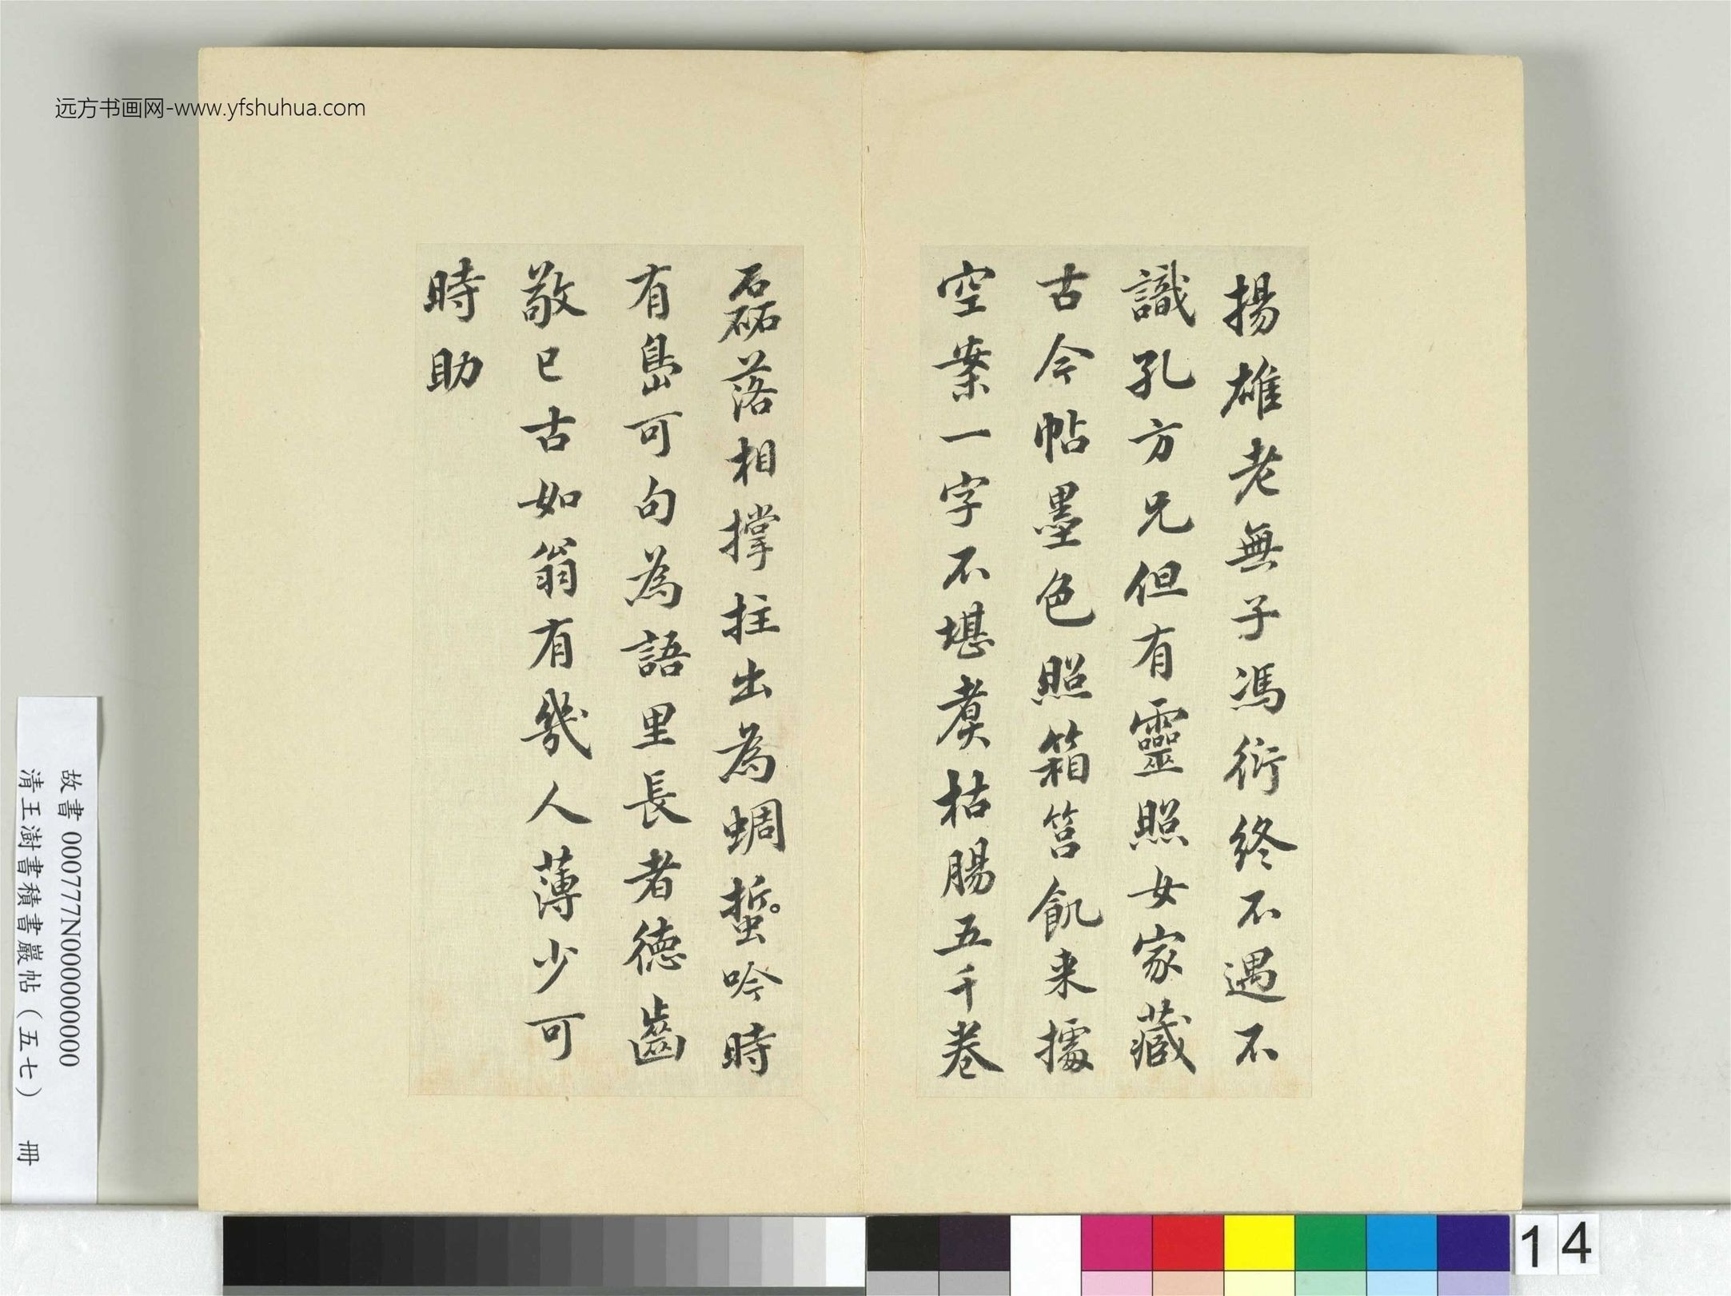 远方书画网-www.yfshuhua.com
揚雄老無子馮衍終不遇不
識孔方兄但有靈照女家藏
古今帖墨色照箱筥飢来據
空案一字不堪煑枯腸五千卷
磊落相撑拄出為蜩蜇吟時
有島可句為語里長者德齒
敬已古如翁有幾人薄少可
時助
故書 000777N000000000
清王澍書積書巖帖(五七) 冊
14